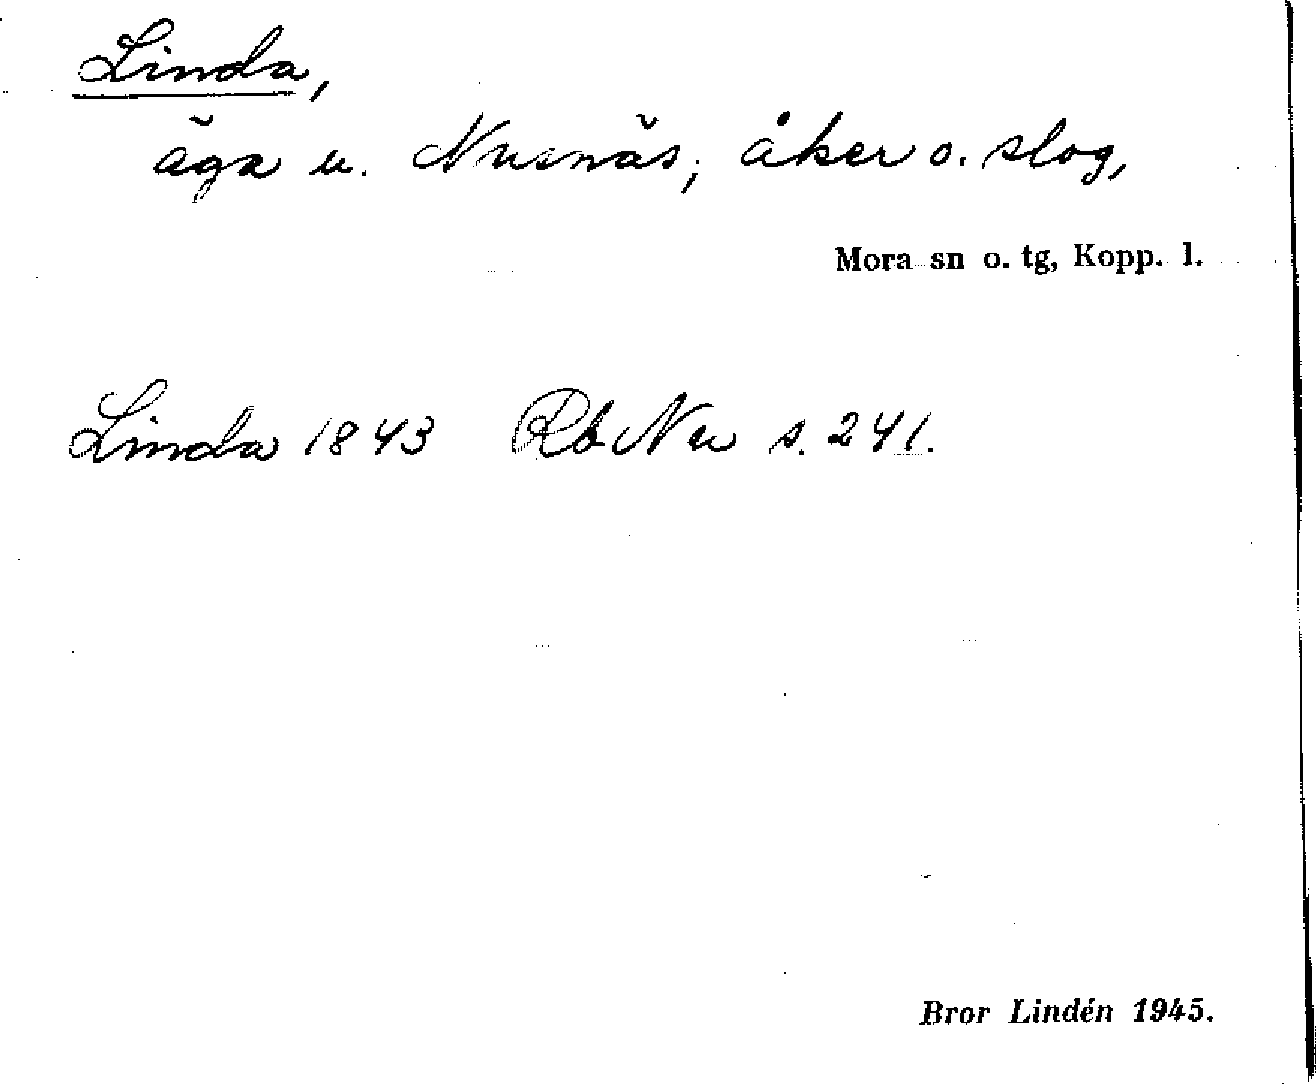 Linda,
äga u. Nusnäs; åker o. slog,
Mora sn o. tg, Kopp. l.
Linda 1843 Rb Nu s. 241.
Bror Lindén 1945.